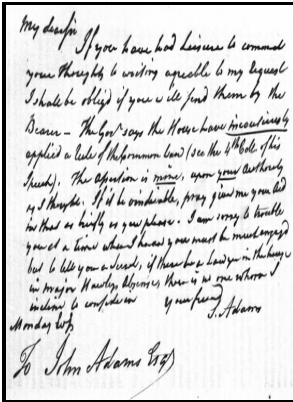 My dear sir
If you have had leisure to commit
your thoughts to writing agreable to my request
I shall be oblig'd if you will send them by the
Bearer — The Govr says the House have incautiously
applied a Rule of the Common Law (see the 4th Coll: of his
Speech). The assertion is mine, upon your Authority
as I thought. If it be vindicable, pray give me your Aid
in that as briefly as you please. I am sorry to trouble
you at a time when I know you must be much engagd
but to tell you a secret, if there be a Lawyer in the house
in Major Hawleys Absence, there is no one whom I
incline to confide in
your friend
S. Adams
Monday
To John Adams Esqr